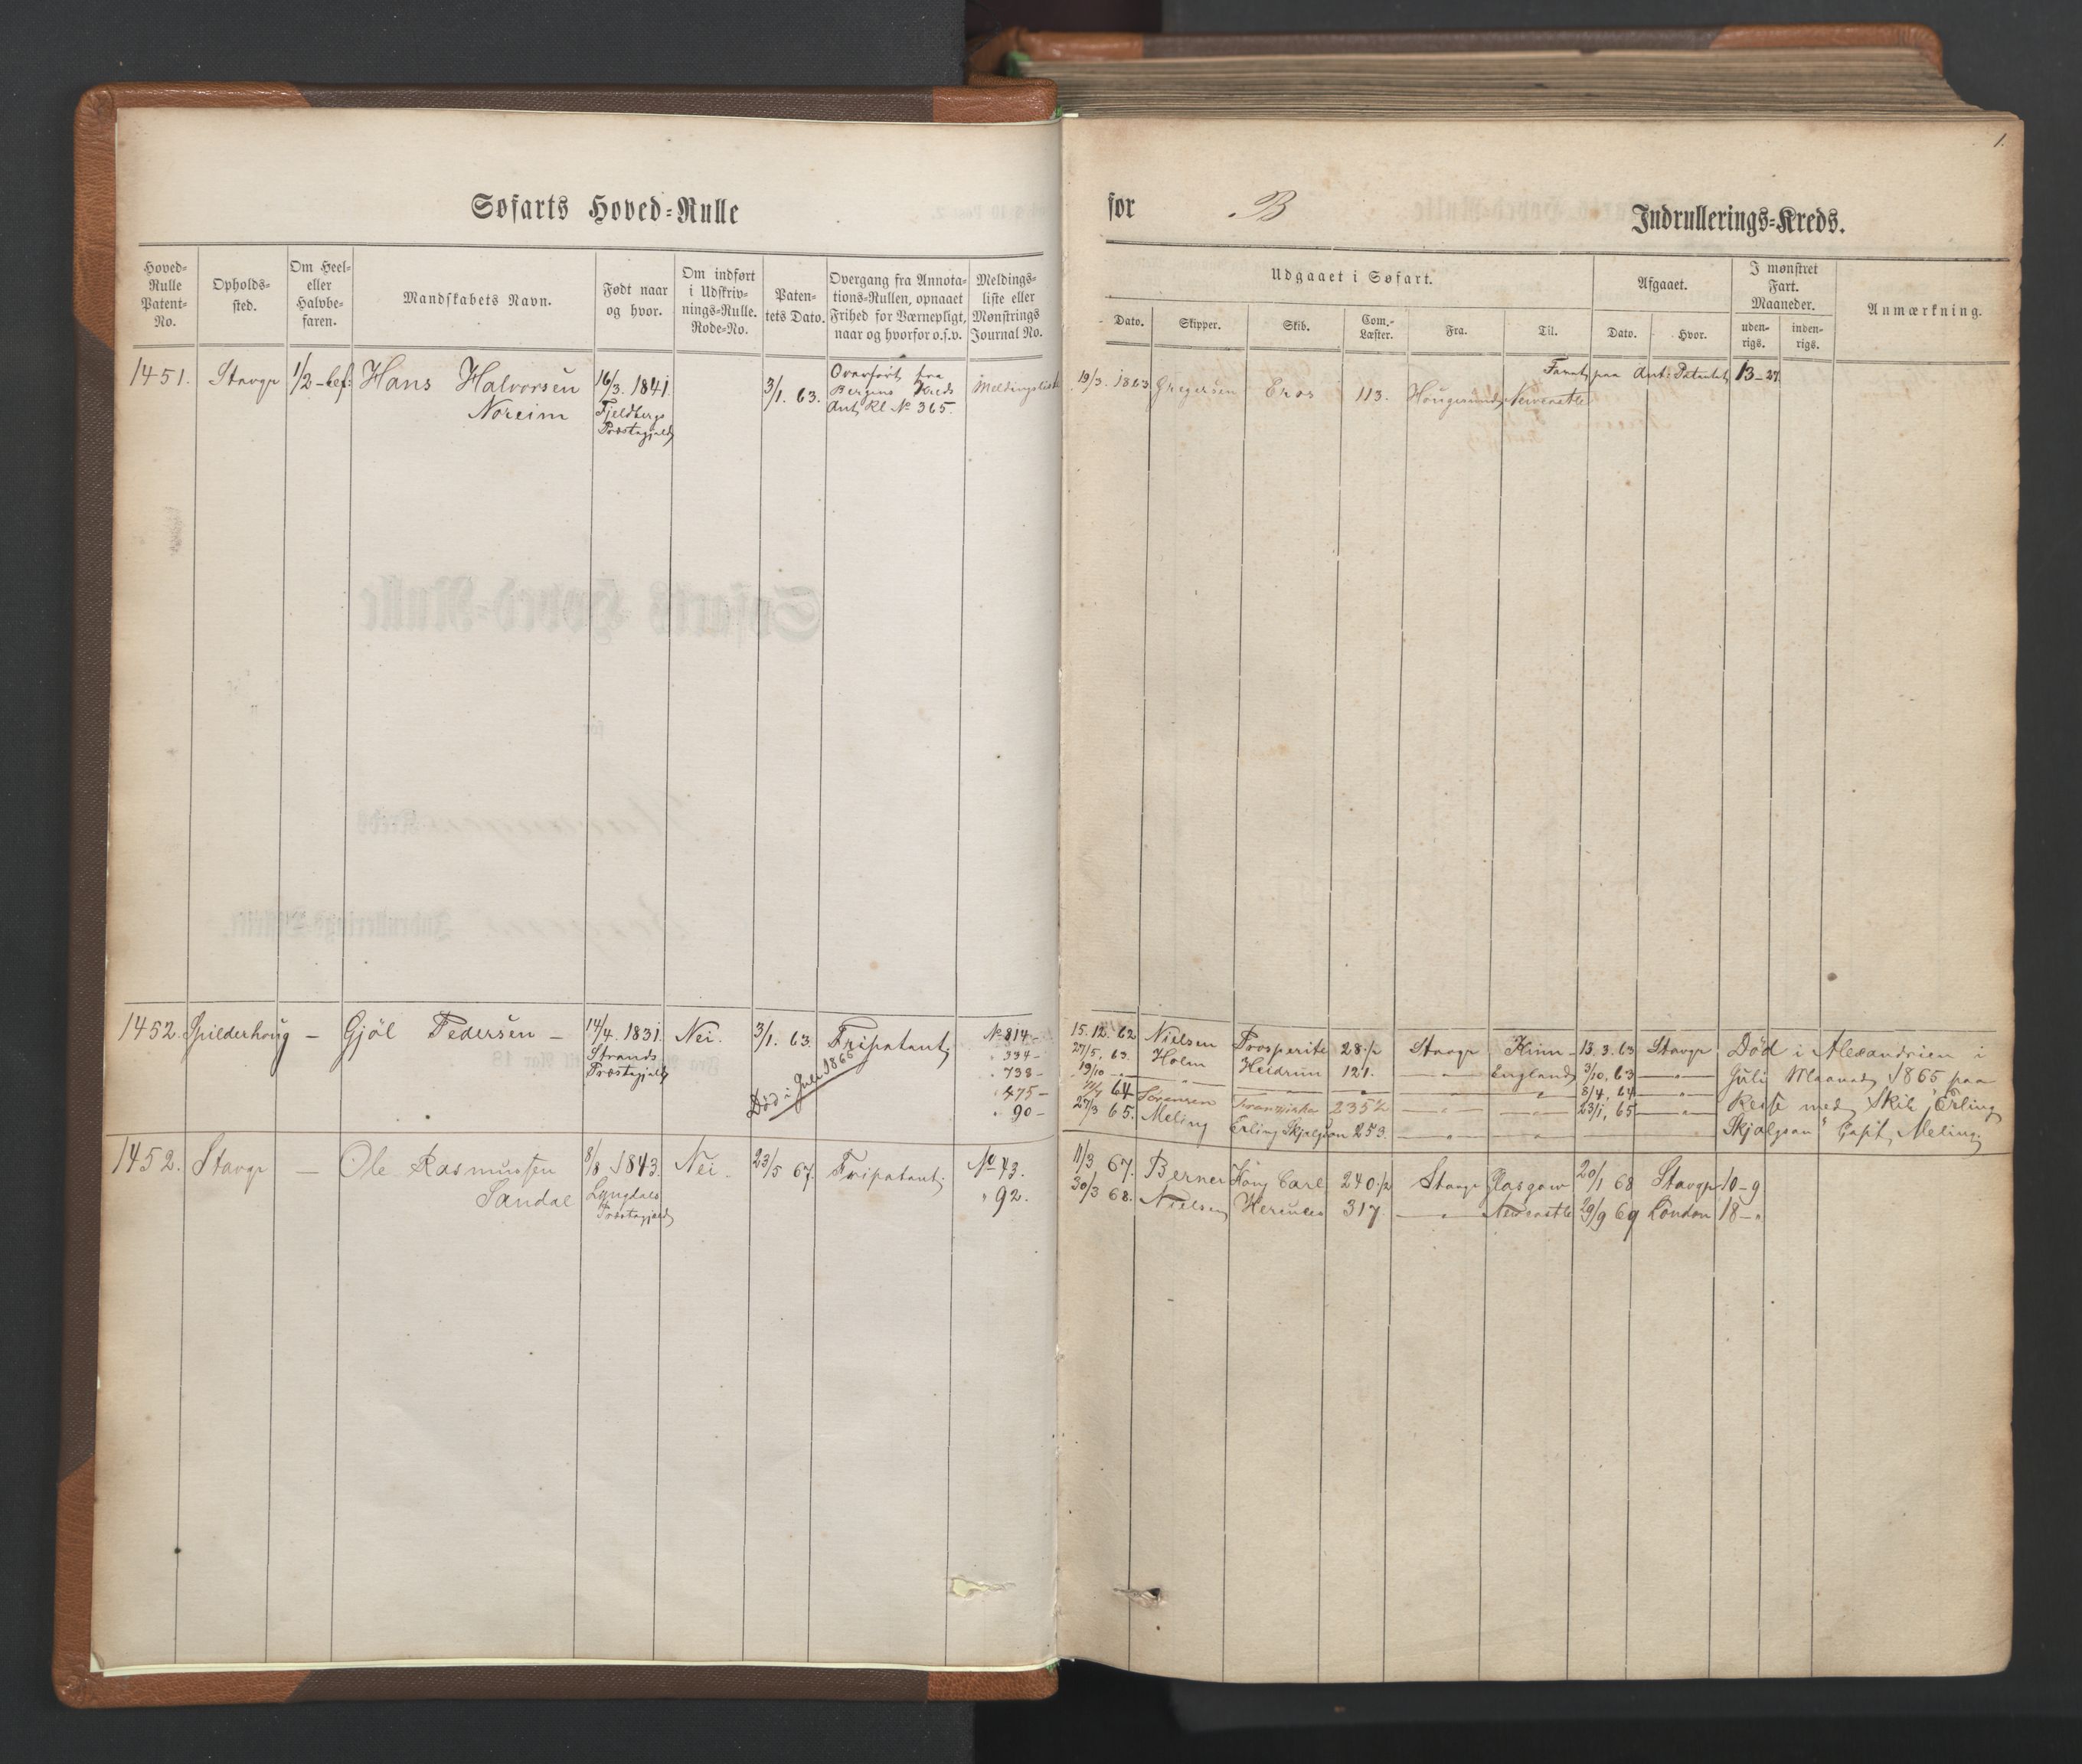 1.
Søfarts Hoved-Rulle
for B Indrullerings-Kreds.
Hoved-Rulle Patent-No.
Opholds-sted.
Om Heel- eller Halvbe-faren.
Mandskabets Navn.
Født naar og hvor.
Om indført i Udskriv-nings-Rulle. Rode-No.
Paten-tets Dato.
Overgang fra Annota-tions-Rullen, opnaaet Frihed for Værnepligt, naar og hvorfor o.s.v.
Meldings-liste eller Mønstrings Journal No.
Udgaaet i Søfart.
Afgaaet.
I mønstret Fart. Maaneder.
Anmærkning.
Dato. Skipper. Skib. Com.-Læster. Fra. Til. Dato. Hvor. uden-rigs. inden-rigs.
1451. Stavgr 1/2-bef: Hans Halvorsen 16/3. 1841. 3/1. 63. Overført fra Meldingslist
Noreim Fjeldbergs Bergens Kreds
Præstegjeld Ant, Rl No 365.
paa Ant: Patentet 13-27
19/3. 1863 Gregersen Eros 113. Hougesund Newcastle
1452. Spilderhoug - Gjøl Pedersen - 14/4. 1831. Nei. 3/1. 63. Fripatent, No 814-
Strands " 334-
Præstegjeld " 738-
Død i 1866 " 475-
" 90-
15.12.62 Nielsen Prosperite 28 1/2 Stavgr Kinn- 13.3.63 Stavgr Død i Alexandrien i
27/5. 63. Holm Heidrun 121. — " — England 3/10. 63 — " — Juli Maaned 1865 paa
19/10 — " — " — " — " — " 8/4. 64 — " — Reise med Skib "Erling
64 Sørensen Franziska 235 1/2 — " — — " — 23/1. 65 — " — Skjalgson" Capt, Meling
27/3 65. Meling Erling Skjalgson 253. — " — "
1452. Stavgr — Ole Rasmussen 8/8 1843. Nei. 23/5 67. Fripatent. No 43.
Sandal Lyngdals " 92.
Præstegjeld
11/3 67. Berner Kong Carl 240 1/2 Stavgr Glasgow 20/1 68 Stavgr 10-9
30/3 68. Nielsen Hercules 317. — " — Newcastle 29/9 69 London 18-"